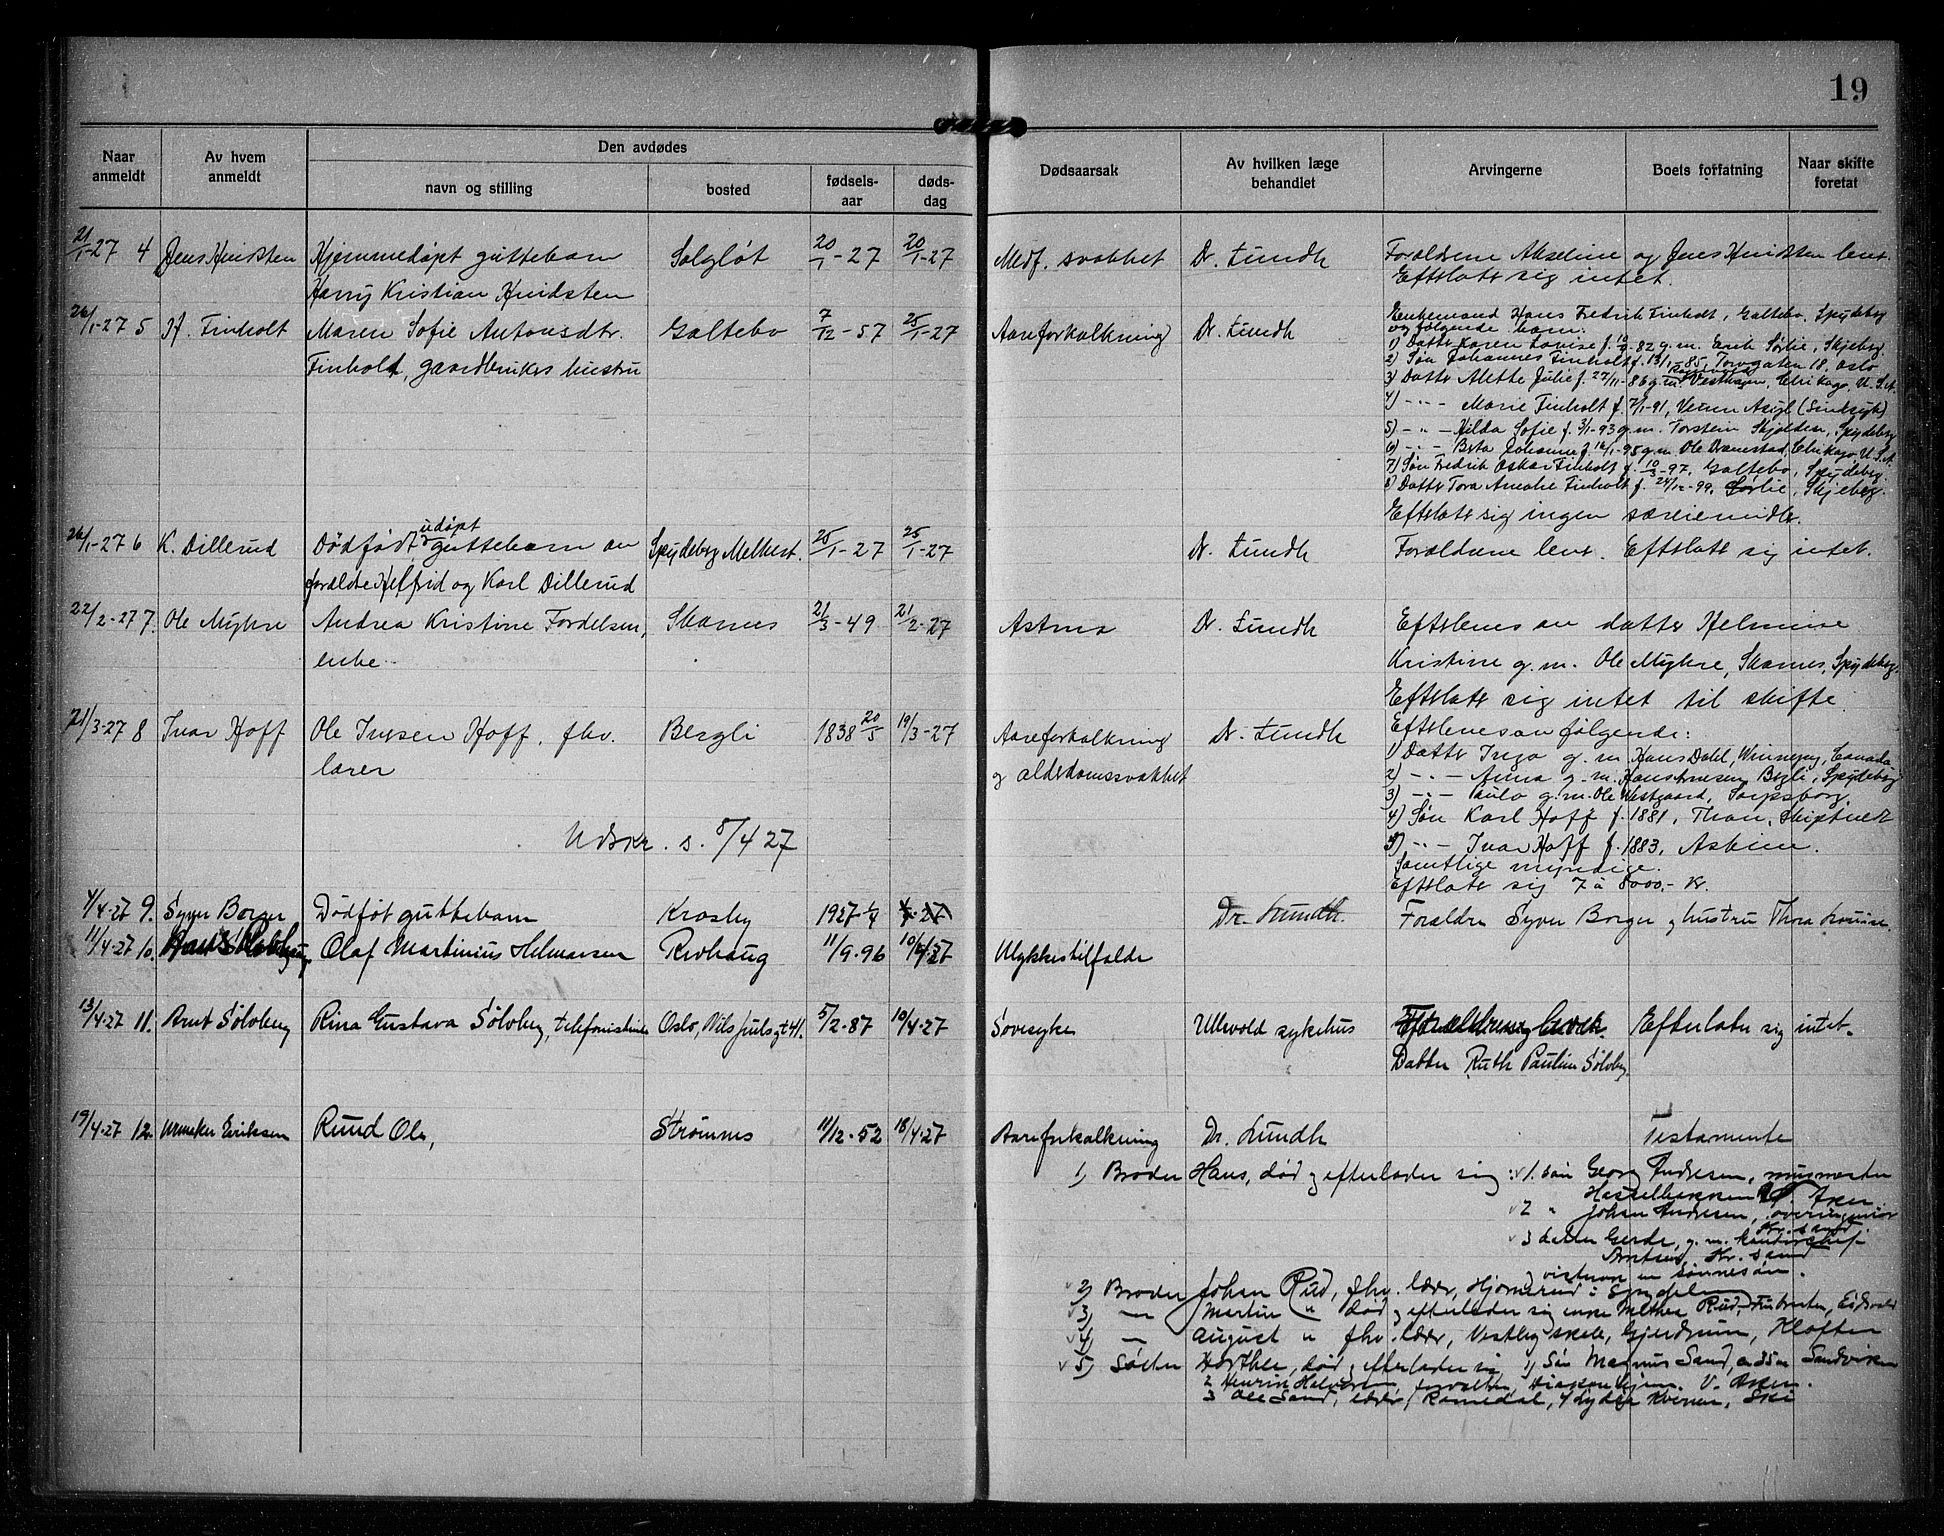 19
Naar anmeldt
Av hvem anmeldt
Den avdødes
navn og stilling
bosted
fødsels-aar
døds-dag
Dødsaarsak
Av hvilken læge behandlet
Arvingerne
Boets forfatning
Naar skifte foretat
21/1-27 4 Jens Hvidsten Hjemmedøpt guttebarn Solgløt 20/1-27 20/1-27 Medf. svakhet Dr. Lundh Forældrene Akseline og Jens Hvidsten lever.
Harry Kristian Hvidsten Efterlater sig intet.
26/1-27 5 H. Finholt Maren Sofie Antonsdtr. Galtebo 7/12-57 25/1-27 Aareforkalkning Dr. Lundh Enkemand Hans Fredrik Finholt, Galtebo, Spydeberg
Finholt, gaardbrukers hustru og følgende barn:
1) Datter Karen Lovise f. 10/9-82 g.m. Erik Sørlie, Skjeberg.
2) Søn Johannes Finholt f. 13/1-85, Torvgaten 18, Oslo
3) Datter Alette Julie f. 27/11-86 g.m. Vesthagen, Chikago, U.S.A.
4) -"- Marie Finholt f. 7/1-91, Veum Asyl (Sindssyk)
5) -"- Hilda Sofie f. 3/1-93 g.m. Torstein Skjolden, Spydeberg
6) -"- Berta Johanne f. 16/1-95 g.m. Ole Chikago U.S.A.
7) Søn Fredrik Oskar Finholt f. 10/3-97, Galtebo, Spydeberg.
8) Datter Tora Amalie Finholt f. 24/12-99, Sørlie, Skjeberg.
Efterlater sig ingen særeiemidler.
26/1-27 6 K. Dillerud Dødfødt udøpt guttebarn av Spydeberg Melkest. 25/1-27 25/1-27 Dr. Lundh Forældrene lever. Efterlater sig intet.
forældre Helfrid og Karl Dillerud
22/2-27 7. Ole Myhre Andrea Kristine Fordelsen, Skamnes 21/3-49 21/2-27 Astma Dr. Lundh Efterleves av datter Helmine
enke. Kristine g.m. Ole Myhre, Skamnes, Spydeberg.
Efterlater sig intet til skifte.
21/3-27 8 Ivar Hoff Ole Iversen Hoff, fhv. Bergli 1838 20/5 19/3-27 Aareforkalkning Dr. Lundh Efterlevesav følgende:
lærer og alderdomssvakhet 1) Datter Inga g.m. Hans Dahl, Winnepeg, Canada
2) -"- Anna g.m. Hans Iversen Bergli, Spydeberg
3) -"- Paula g.m. Ole Westgaard, Sarpsborg.
4) Søn Karl Hoff f. 1881, Thon, Skiptvet
5) -"- Ivar Hoff f. 1883, Askim.
Samtlige myndige.
Efterlater sig 7 à 8000,- kr.
Utskr. s. 8/4 27
4/4-27 9. Syver Borger Dødføt guttebarn Krosby 1927 1/4 Dr. Lundh. Forældre Syver Borger og hustru Thora Lovise.
11/4-27 10. Olaf Martinius Helmersen Rødhaug 11/9.96 10/4.27 Ulykkestilfælde
13/4-27 11. Arnt Sølvberg Rina Gustava Sølvberg, telefonistinde Oslo, Nils Juelsgt 41. 5/2-87 10/4-27 Sovesyke Ullevold sykehus Efterlater sig intet.
Datter Ruth Pauline Sølvberg.
19/4-27 12. Eriksen Ruud Ole, Strømnes 11/12-52 18/4-27 Aareforkalkning Dr. Lundh Testamente
1) Broder Hans, død og efterlader sig: 1. søn Georg Andresen, murmester
Hasselbakken V. Aker
2 " Johan Andresen, overingeniør
Kr.sand
3 datter Gerda, g.m. kontorchef
Arntsen, Kr.sand
vistnok en sønnesøn.
2) Broder Johan Rud, fhv. lærer, Hjornerud i
3) — Martin " død og efterlader sig enke Methea Rud, Eidsvold
4) — August " fhv. lærer, Vestby skole, Gjerdrum, Kløften
5) Søster Dorthea, død og efterlader sig 1) Søn Magnus Sand, Sandviken
2 Henrik Halvorsen, forvalter, Diakonhjem. V. Aker.
3 Ole Sand, lærer, Romedal, 4 Lydia Kvernen, Ski